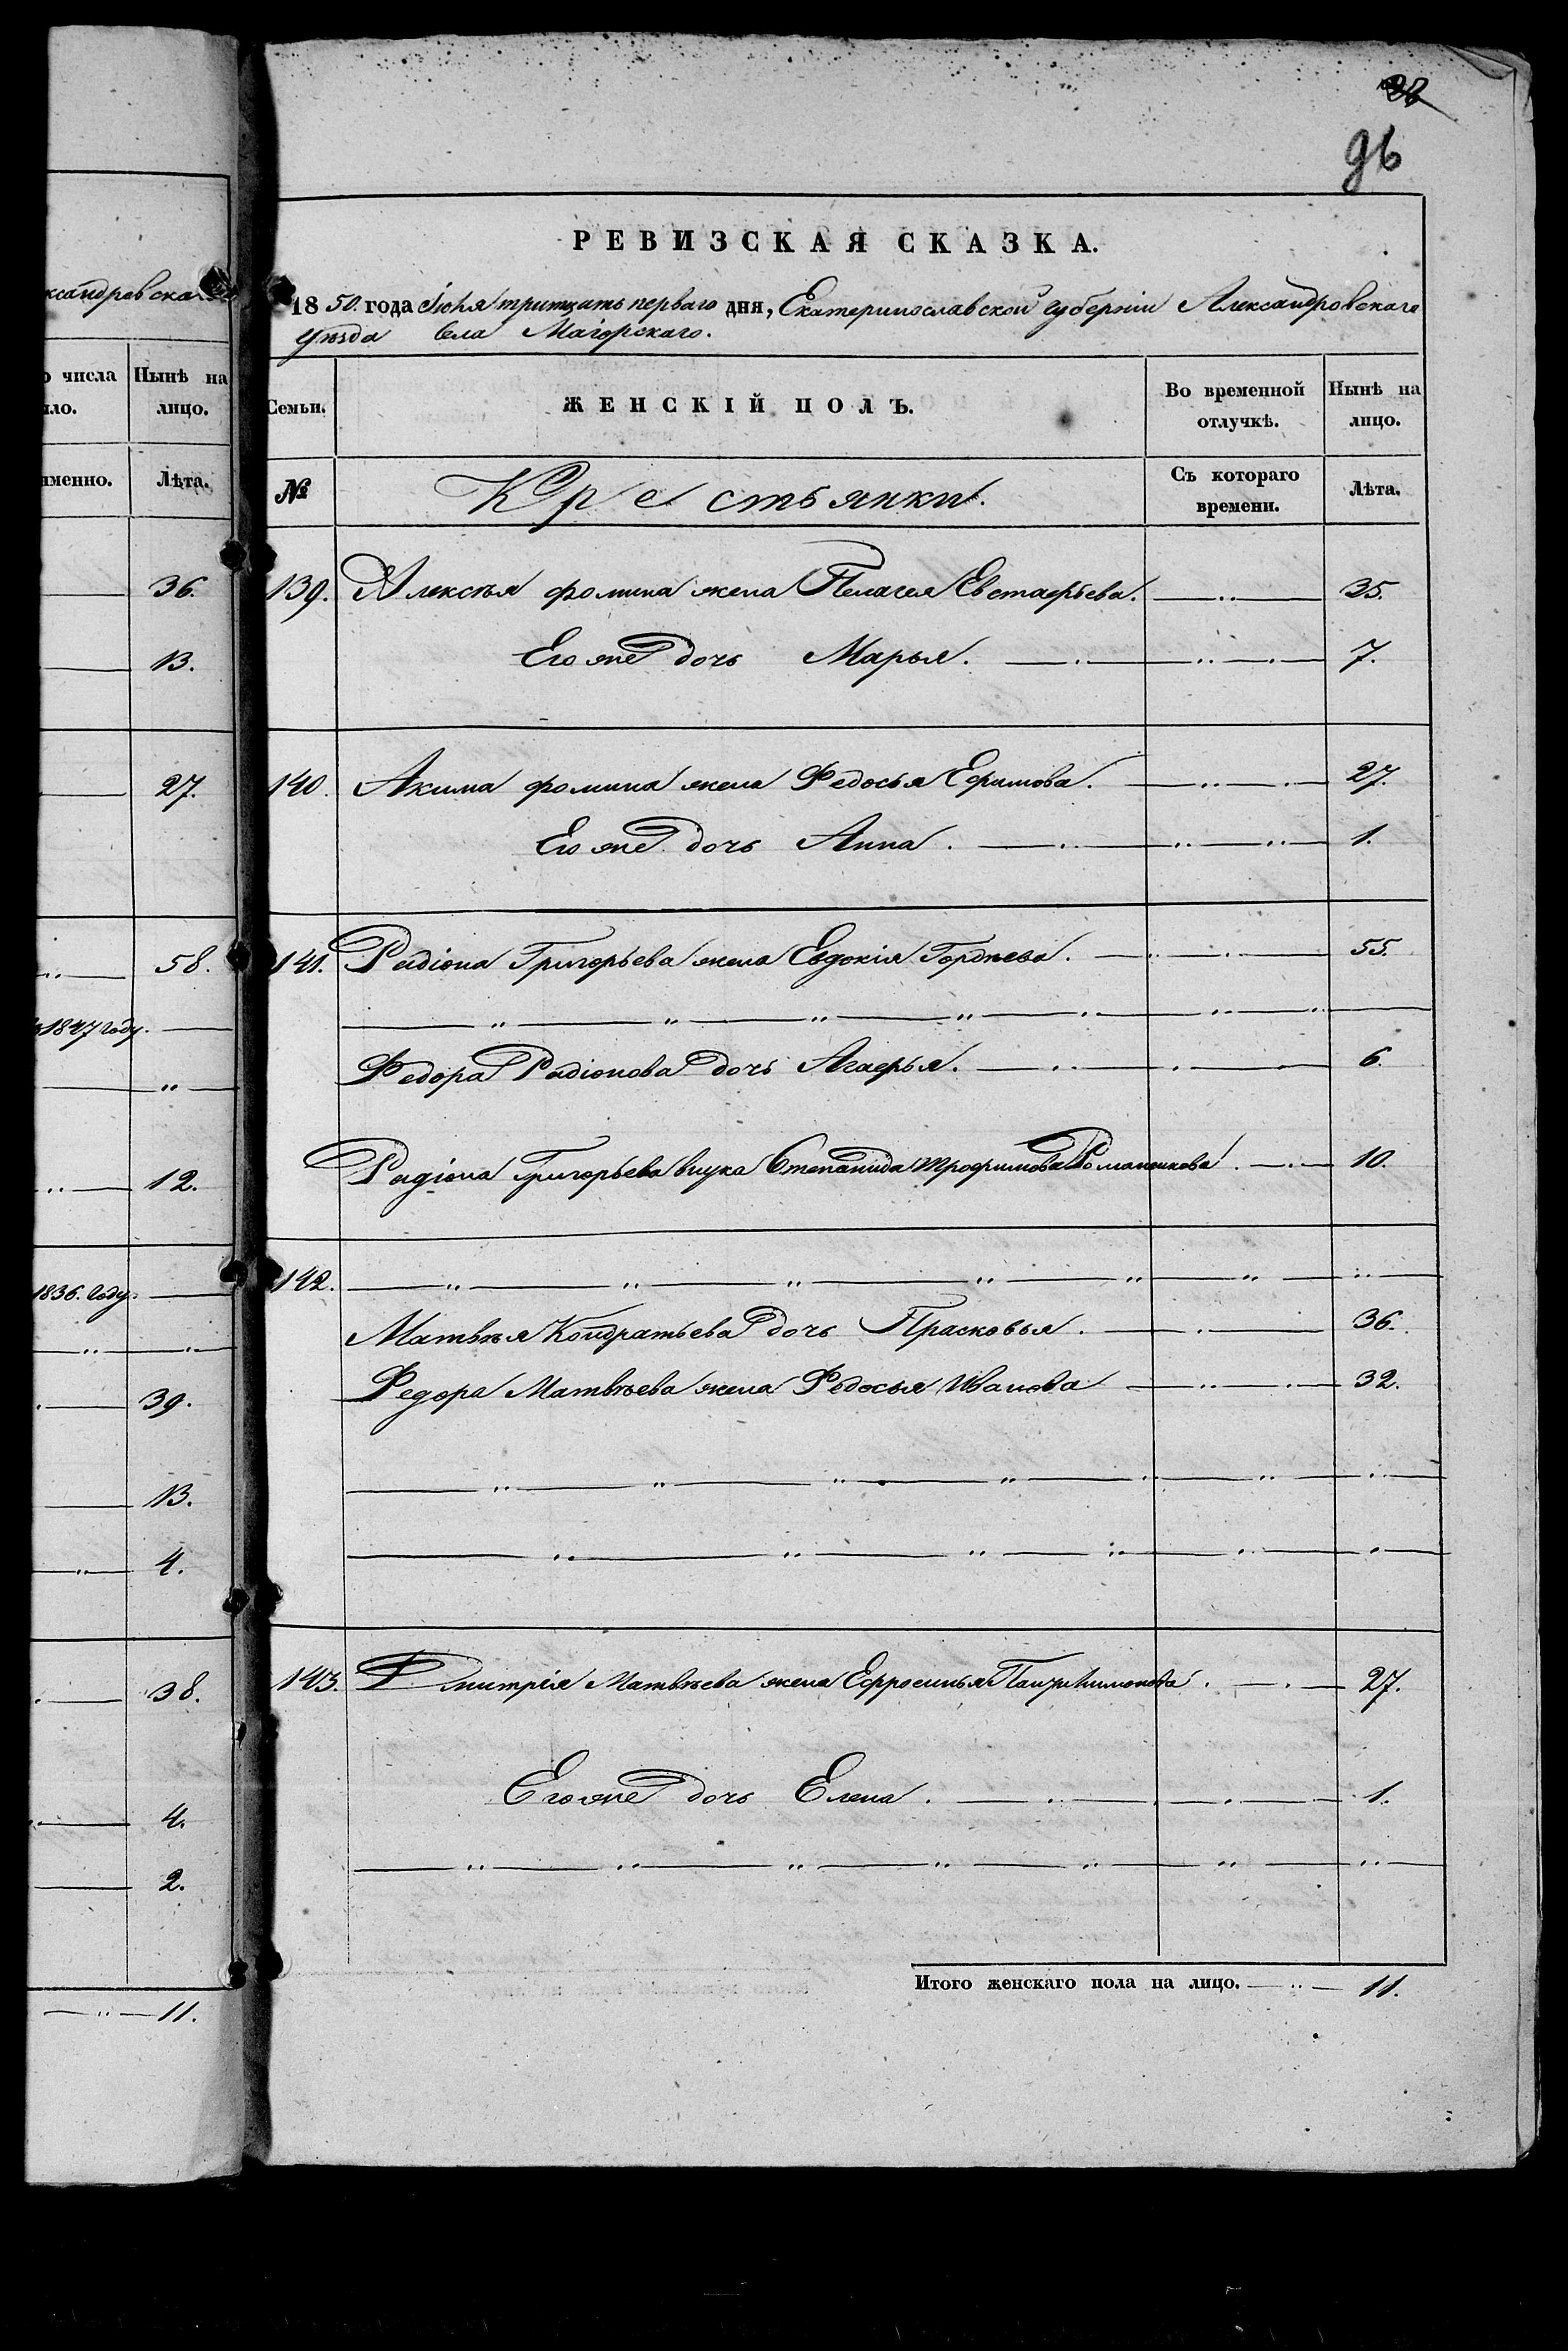 ксандровскаго
о числа Нынѣ на
ыло. лицо.
именно. Лѣта.
36.
13.
27.
58.
1847 году.
12.
1836. году.
39.
13.
4.
38.
4.
2.
11.
96
РЕВИЗСКАЯ СКАЗКА.
1850. года Іюля тритцать перваго дня, Екатеринославской губерніи Александровскаго
уѣзда села Маіорскаго.
Семьи. ЖЕНСКІЙ ПОЛЪ. Во временной отлучкѣ. Нынѣ на лицо.
№ Крестьянки. Съ котораго времени. Лѣта.
139. Алексѣя Фомина жена Пелагея Евстафьева. 35.
Его же дочь Марья. 7.
140. Акима Фомина жена Федосья Ефимова. 27.
Его же дочь Анна. 1.
141. Радіона Григорьева жена Евдокія Гордѣева. 55.
Федора Радіонова дочь Агафья. 6.
Радіона Григорьева внука Степанида Трофимова Романенкова. 10.
142.
Матвѣя Кондратьева дочь Прасковья. 36.
Федора Матвѣева жена Федосья Иванова 32.
143. Дмитрія Матвѣева жена Ефросинья 27.
Его же дочь Елена. 1.
Итого женскаго пола на лицо. 11.